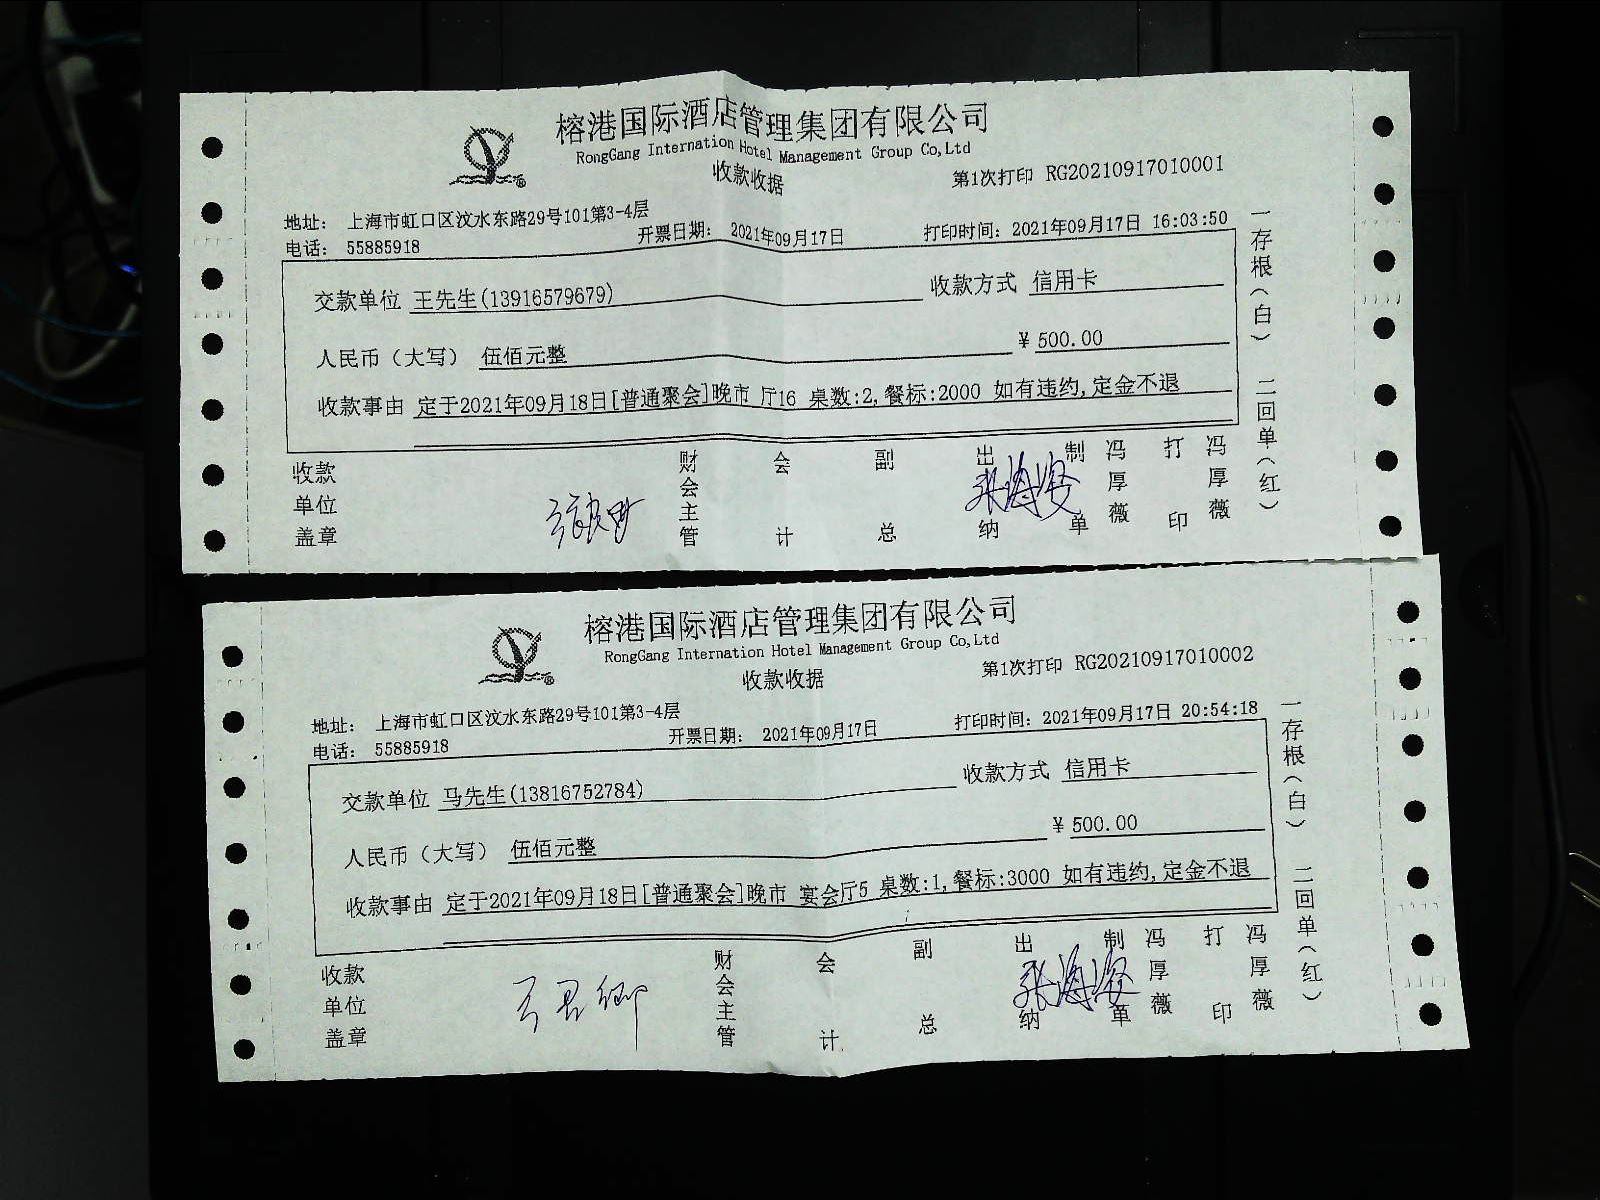 榕港国际酒店管理集团有限公司
RongGang Internation Hotel Management Group Co,Ltd
收款收据
第1次打印 RG20210917010001
地址： 上海市虹口区汶水东路29号101第3-4层
电话： 55885918
开票日期： 2021年09月17日
打印时间：2021年09月17日 16:03:50
交款单位 王先生(13916579679)
收款方式 信用卡
人民币（大写） 伍佰元整
¥ 500.00
收款事由 定于2021年09月18日[普通聚会]晚市 厅16 桌数:2,餐标:2000 如有违约,定金不退
收款单位盖章
财会主管
会计
副总
出纳
张海燕
制单
冯厚薇
打印
冯厚薇
一存根（白）
二回单（红）
榕港国际酒店管理集团有限公司
RongGang Internation Hotel Management Group Co,Ltd
收款收据
第1次打印 RG20210917010002
地址： 上海市虹口区汶水东路29号101第3-4层
电话： 55885918
开票日期： 2021年09月17日
打印时间：2021年09月17日 20:54:18
交款单位 马先生(13816752784)
收款方式 信用卡
人民币（大写） 伍佰元整
¥ 500.00
收款事由 定于2021年09月18日[普通聚会]晚市 宴会厅5 桌数:1,餐标:3000 如有违约,定金不退
收款单位盖章
财会主管
会计
副总
出纳
张海燕
制单
冯厚薇
打印
冯厚薇
一存根（白）
二回单（红）